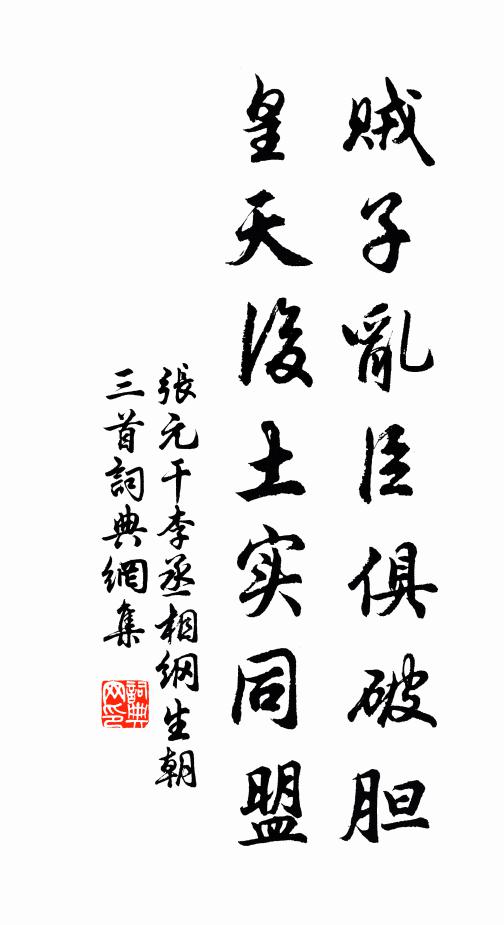 賊子亂臣俱破胆
皇天後土实同盟
張元干李丞相纲生朝
三首詞典網集
詞典
网印